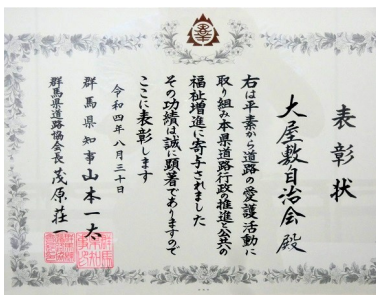 表彰状
大屋敷自治会殿
右は平素から道路の愛護活動に
取り組み本県道路行政の推進と公共の
福祉増進に寄与されました
その功績は誠に顕著でありますので
ここに表彰します
令和四年八月三十日
群馬県知事 山本一太
群馬県道路協会長 茂原荘一